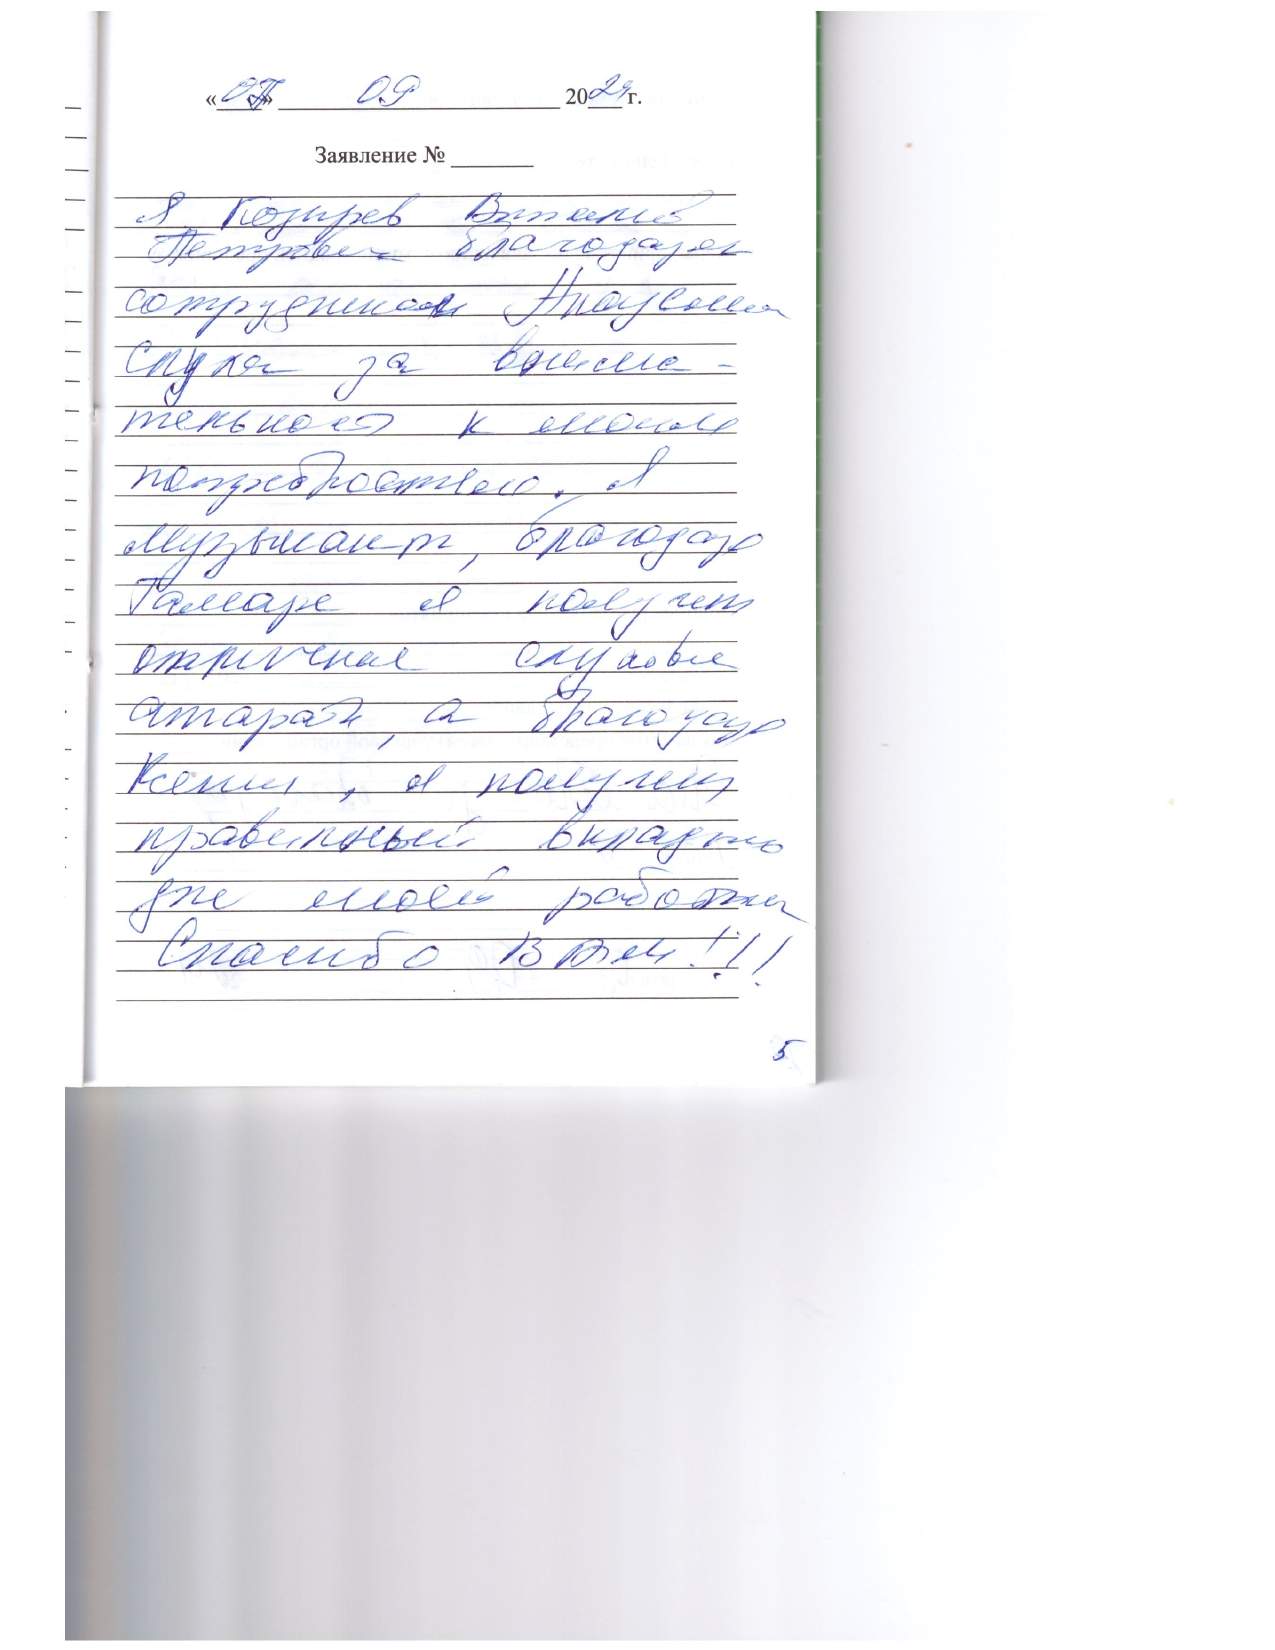 «07» 09 2024 г.
Заявление №
Я Козырев Виталий
Петрович благодарен
сотрудникам
слуха за внима-
тельность к моим
потребностям. Я
музыкант, благодаря
Тамаре я получил
отличная слуховые
аппарат, а благодаря
Ксении, я получил
правильный вкладыш
для моей работы
Спасибо Вам!!!
5